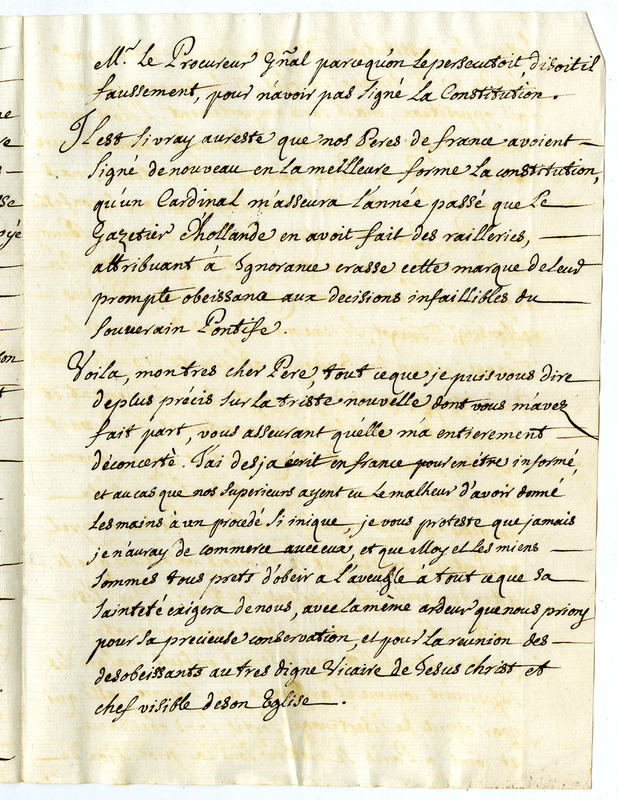 Mr. Le Procureur Gñal parcequ'on Le persecutoit disoit il
faussement, pour n'avoir pas signé La Constitution.
Il est si vray au reste que nos Peres de france avoient
signé de nouveau en La meilleure forme La constitution,
qu'un Cardinal m'asseura l'année passé que Le
Gazetier d'hollande en avoit fait des railleries,
attribuant à Ignorance crasse cette marque de leur
prompte obeissance aux decisions infaillibles du
Souverain Pontife.
Voila, mon tres cher Pere, tout ce que je puis vous dire
de plus précis sur La triste nouvelle dont vous m'avez
fait part, vous asseurant qu'elle m'a entierement
déconcerté. J'ai desja écrit en france pour en être informé,
et au cas que nos superieurs ayent eu Le malheur d'avoir donné
Les mains à un procedé si inique, je vous proteste que jamais
je n'auray de commerce avec eux, et que Moy et Les miens
sommes tous prets d'obeir a l'aveugle à tout ce que sa
sainteté exigera de nous, avec la même ardeur que nous prions
pour sa precieuse conservation, et pour La reunion des
desobeissants au tres digne Vicaire de Jesus Christ et
chef visible de son Eglise.